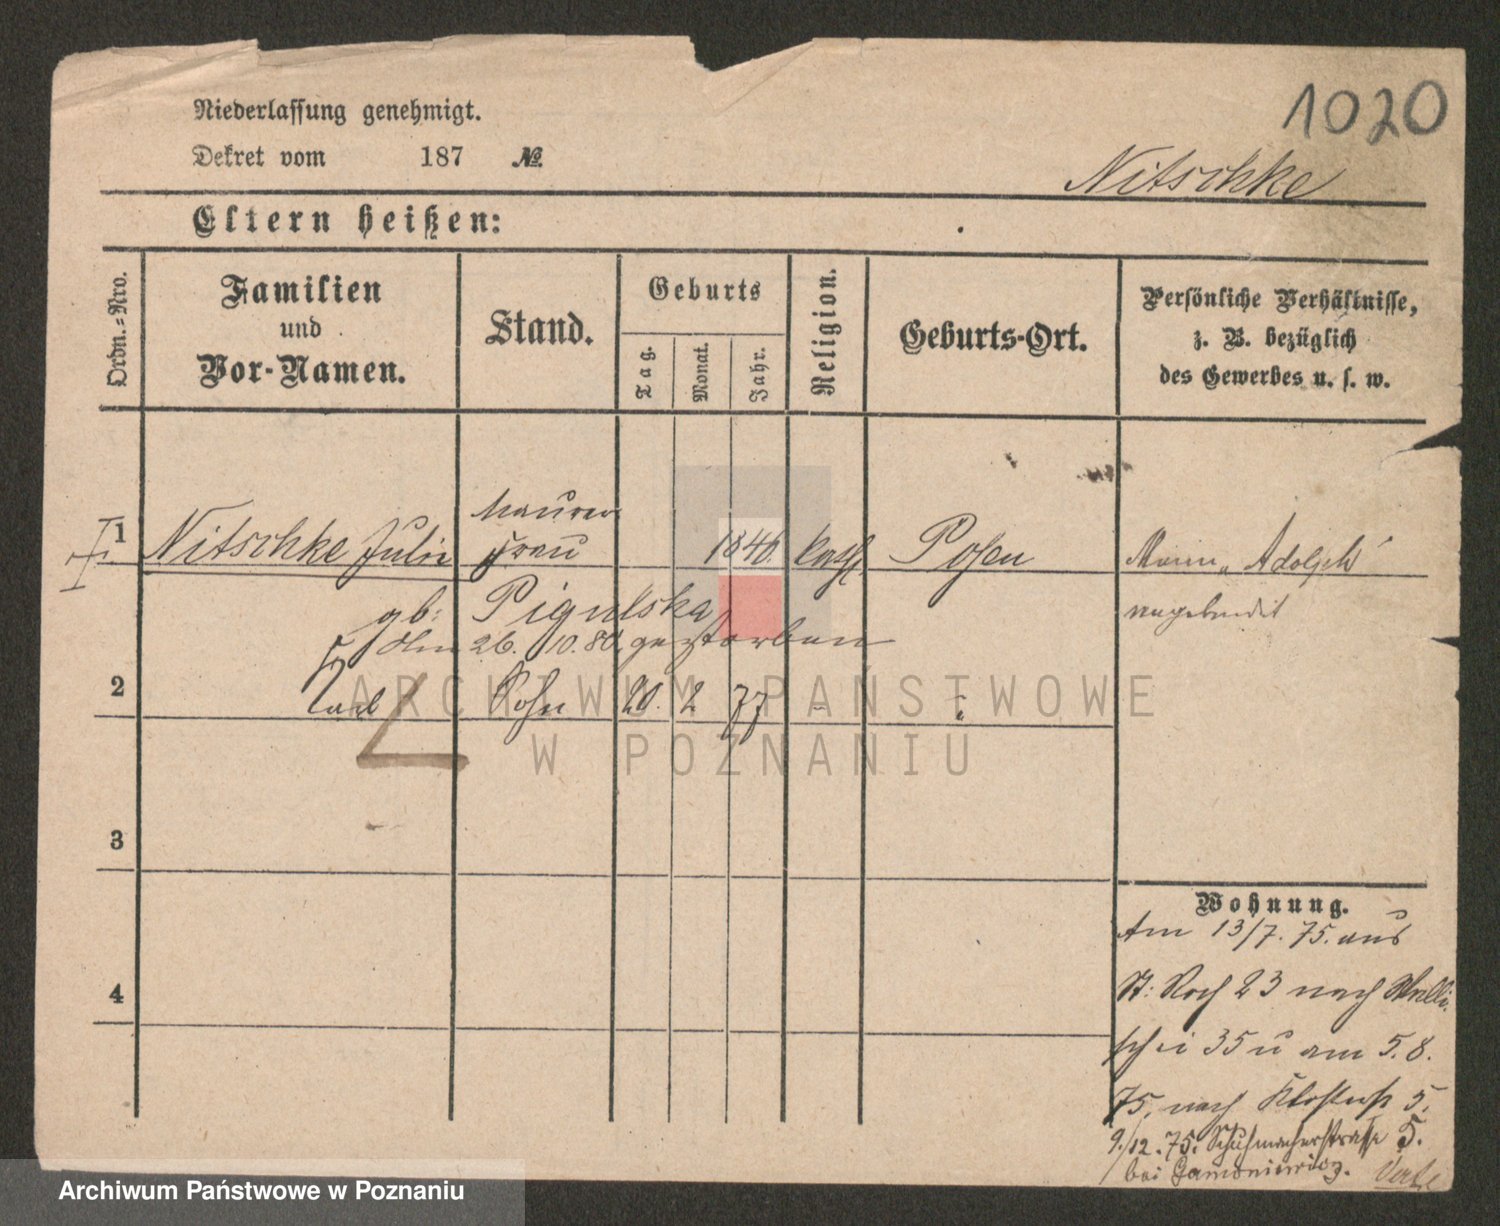 1020
Niederlassung genehmigt.
Dekret vom 187 No.
Nitschke
Eltern heißen:
Ordn.=Nro.
Familien
und
Vor-Namen.
Stand.
Geburts
Tag.
Monat.
Jahr.
Religion.
Geburts-Ort.
Persönliche Verhältnisse,
z. B. bezüglich
des Gewerbes u. s. w.
Maurer
1 Nitschke Julie Frau 1846. kath. Posen Mann "Adolph"
gb: Pigulska
den 26. 10. 80. gestorben
2 Sohn 20. 2 77 "
3
4
Wohnung.
Am 13/7. 75. aus
St: Roch 23 nach Walli-
schei 35 u am 5. 8.
75. nach Klosterstr 5.
9./12. 75. Schuhmacherstrasse 5.
bei
ARCHIWUM PAŃSTWOWE
W POZNANIU
Archiwum Państwowe w Poznaniu